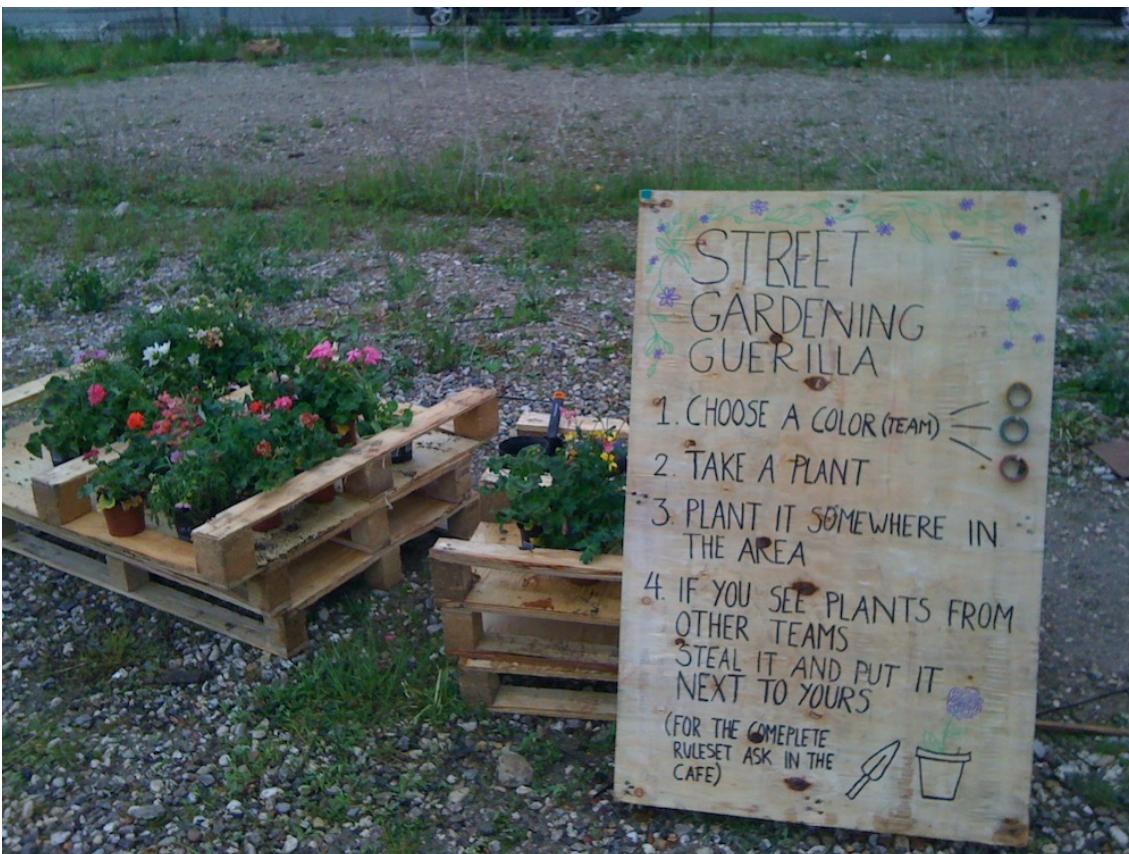 STREET
GARDENING
GUERILLA
1. CHOOSE A COLOR (TEAM)
2. TAKE A PLANT
3. PLANT IT SOMEWHERE IN
THE AREA
4. IF YOU SEE PLANTS FROM
OTHER TEAMS
STEAL IT AND PUT IT
NEXT TO YOURS
(FOR THE COMEPLETE
RULESET ASK IN THE
CAFE)